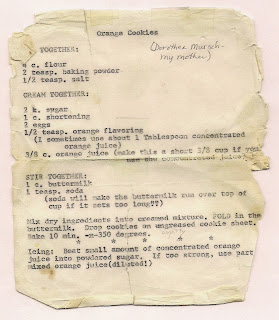 Orange Cookies
(Dorothea
my mother)
TOGETHER:
c. flour
2 teasp. baking powder
1/2 teasp. salt
CREAM TOGETHER:
2 c. sugar
1 c. shortening
2 eggs
1/2 teasp. orange flavoring
(I sometimes use about 1 Tablespoon concentrated
orange juice)
3/8 c. orange juice (make this a short 3/8 cup if you
use the concentrated juice)
STIR TOGETHER:
1 c. buttermilk
1 teasp. soda
(soda will make the buttermilk run over top of
cup if it sets too long??)
Mix dry ingredients into creamed mixture. FOLD in the
buttermilk. Drop cookies on ungreased cookie sheet.
Bake 10 min. 350 degrees.
* * * * * *
Icing: Beat small amount of concentrated orange
juice into powdered sugar. If too strong, use part
mixed orange juice(diluted)